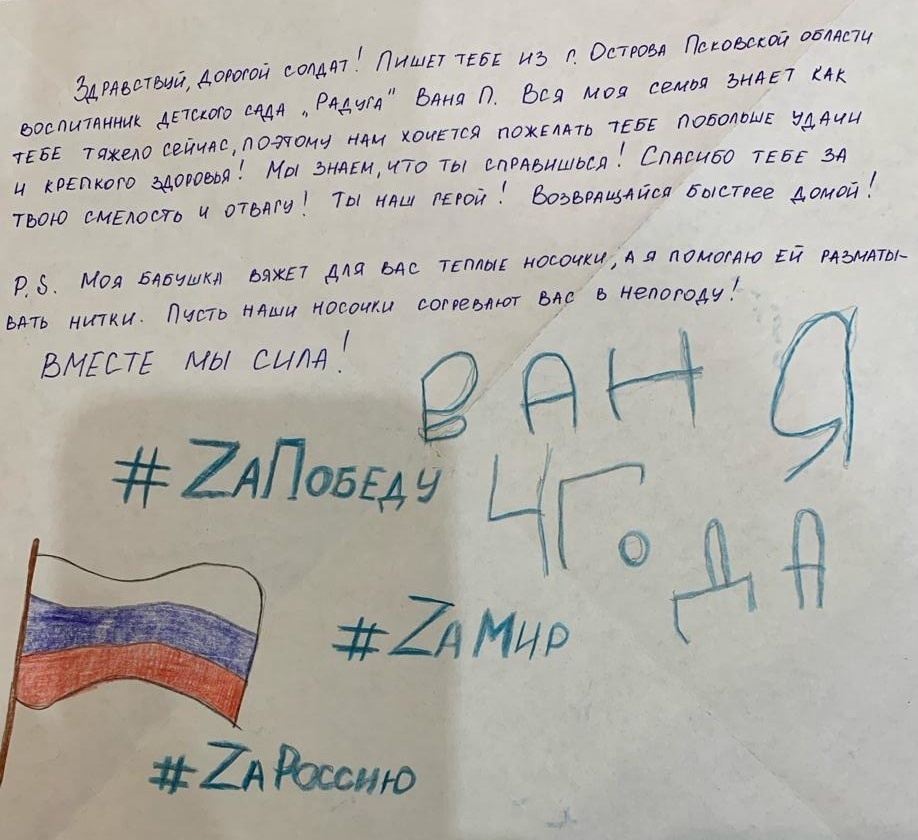 Здравствуй, дорогой солдат! Пишет тебе из г. Острова Псковской области
воспитанник детского сада „Радуга" Ваня П. Вся моя семья знает как
тебе тяжело сейчас, поэтому нам хочется пожелать тебе побольше удачи
и крепкого здоровья! Мы знаем, что ты справишься! Спасибо тебе за
твою смелость и отвагу! Ты наш герой! Возвращайся быстрее домой!
P.S. Моя бабушка вяжет для вас теплые носочки, а я помогаю ей разматы-
вать нитки. Пусть наши носочки согревают вас в непогоду!
Вместе мы сила!
ВАНЯ
4 Года
#ZаПобеду
#ZаМир
#ZаРоссию